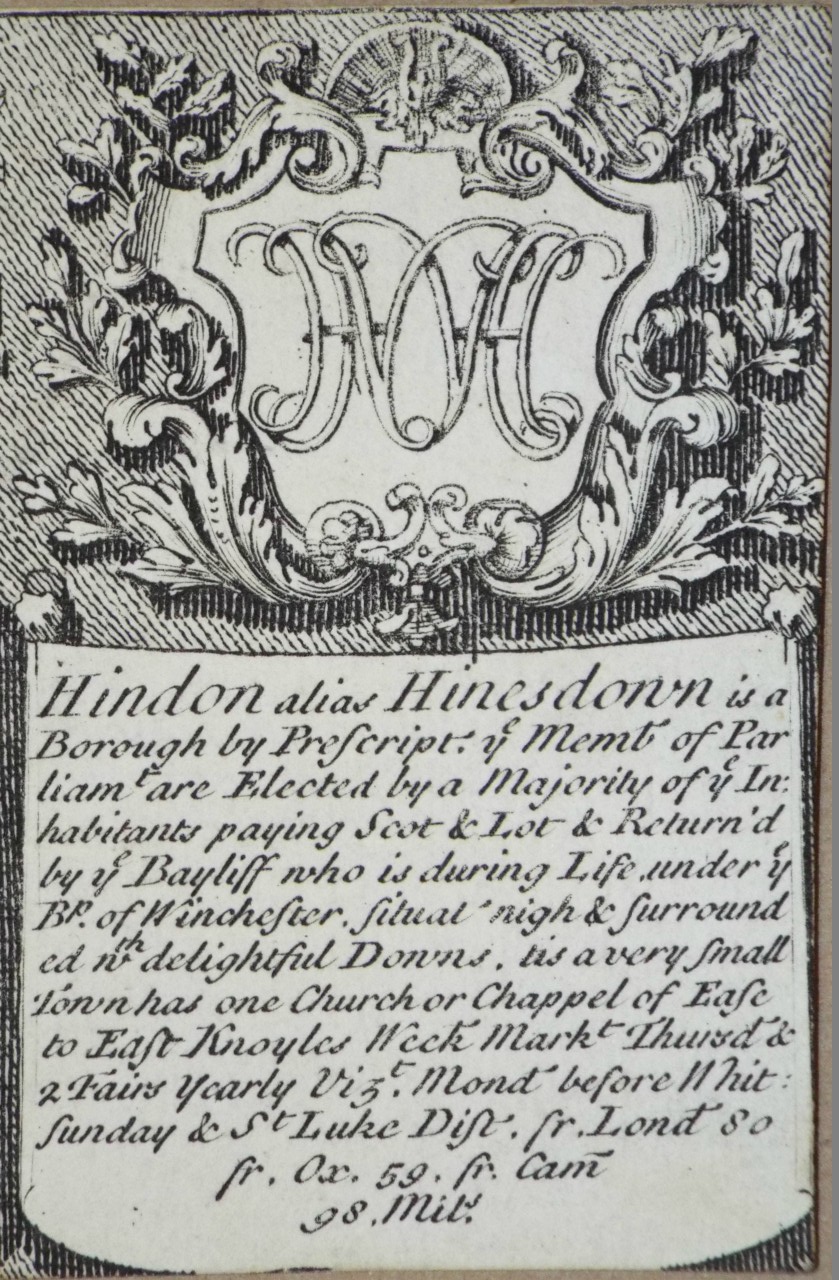 Hindon alias Hinesdown is a
Borough by Preſcript. yͤ Membˢ of Par
liamᵗ are Elected by a Majority of yͤ In:
habitants paying Scot & Lot & Return'd
by yͤ Bayliff who is during Life, under yͤ
Bᵖ. of Wincheſter. ſituat nigh & ſurround
ed wᵗʰ delightful Downs. tis a very ſmall
Town has one Church or Chappel of Eaſe
to Eaſt Knoyles Week Markᵗ Thursd &
2 Fairs Yearly Vizᵗ. Mond before Whit:
ſunday & Sᵗ Luke Diſt. fr. Lond 80
fr. Ox. 59. fr. Cam̄
98. Milˢ.